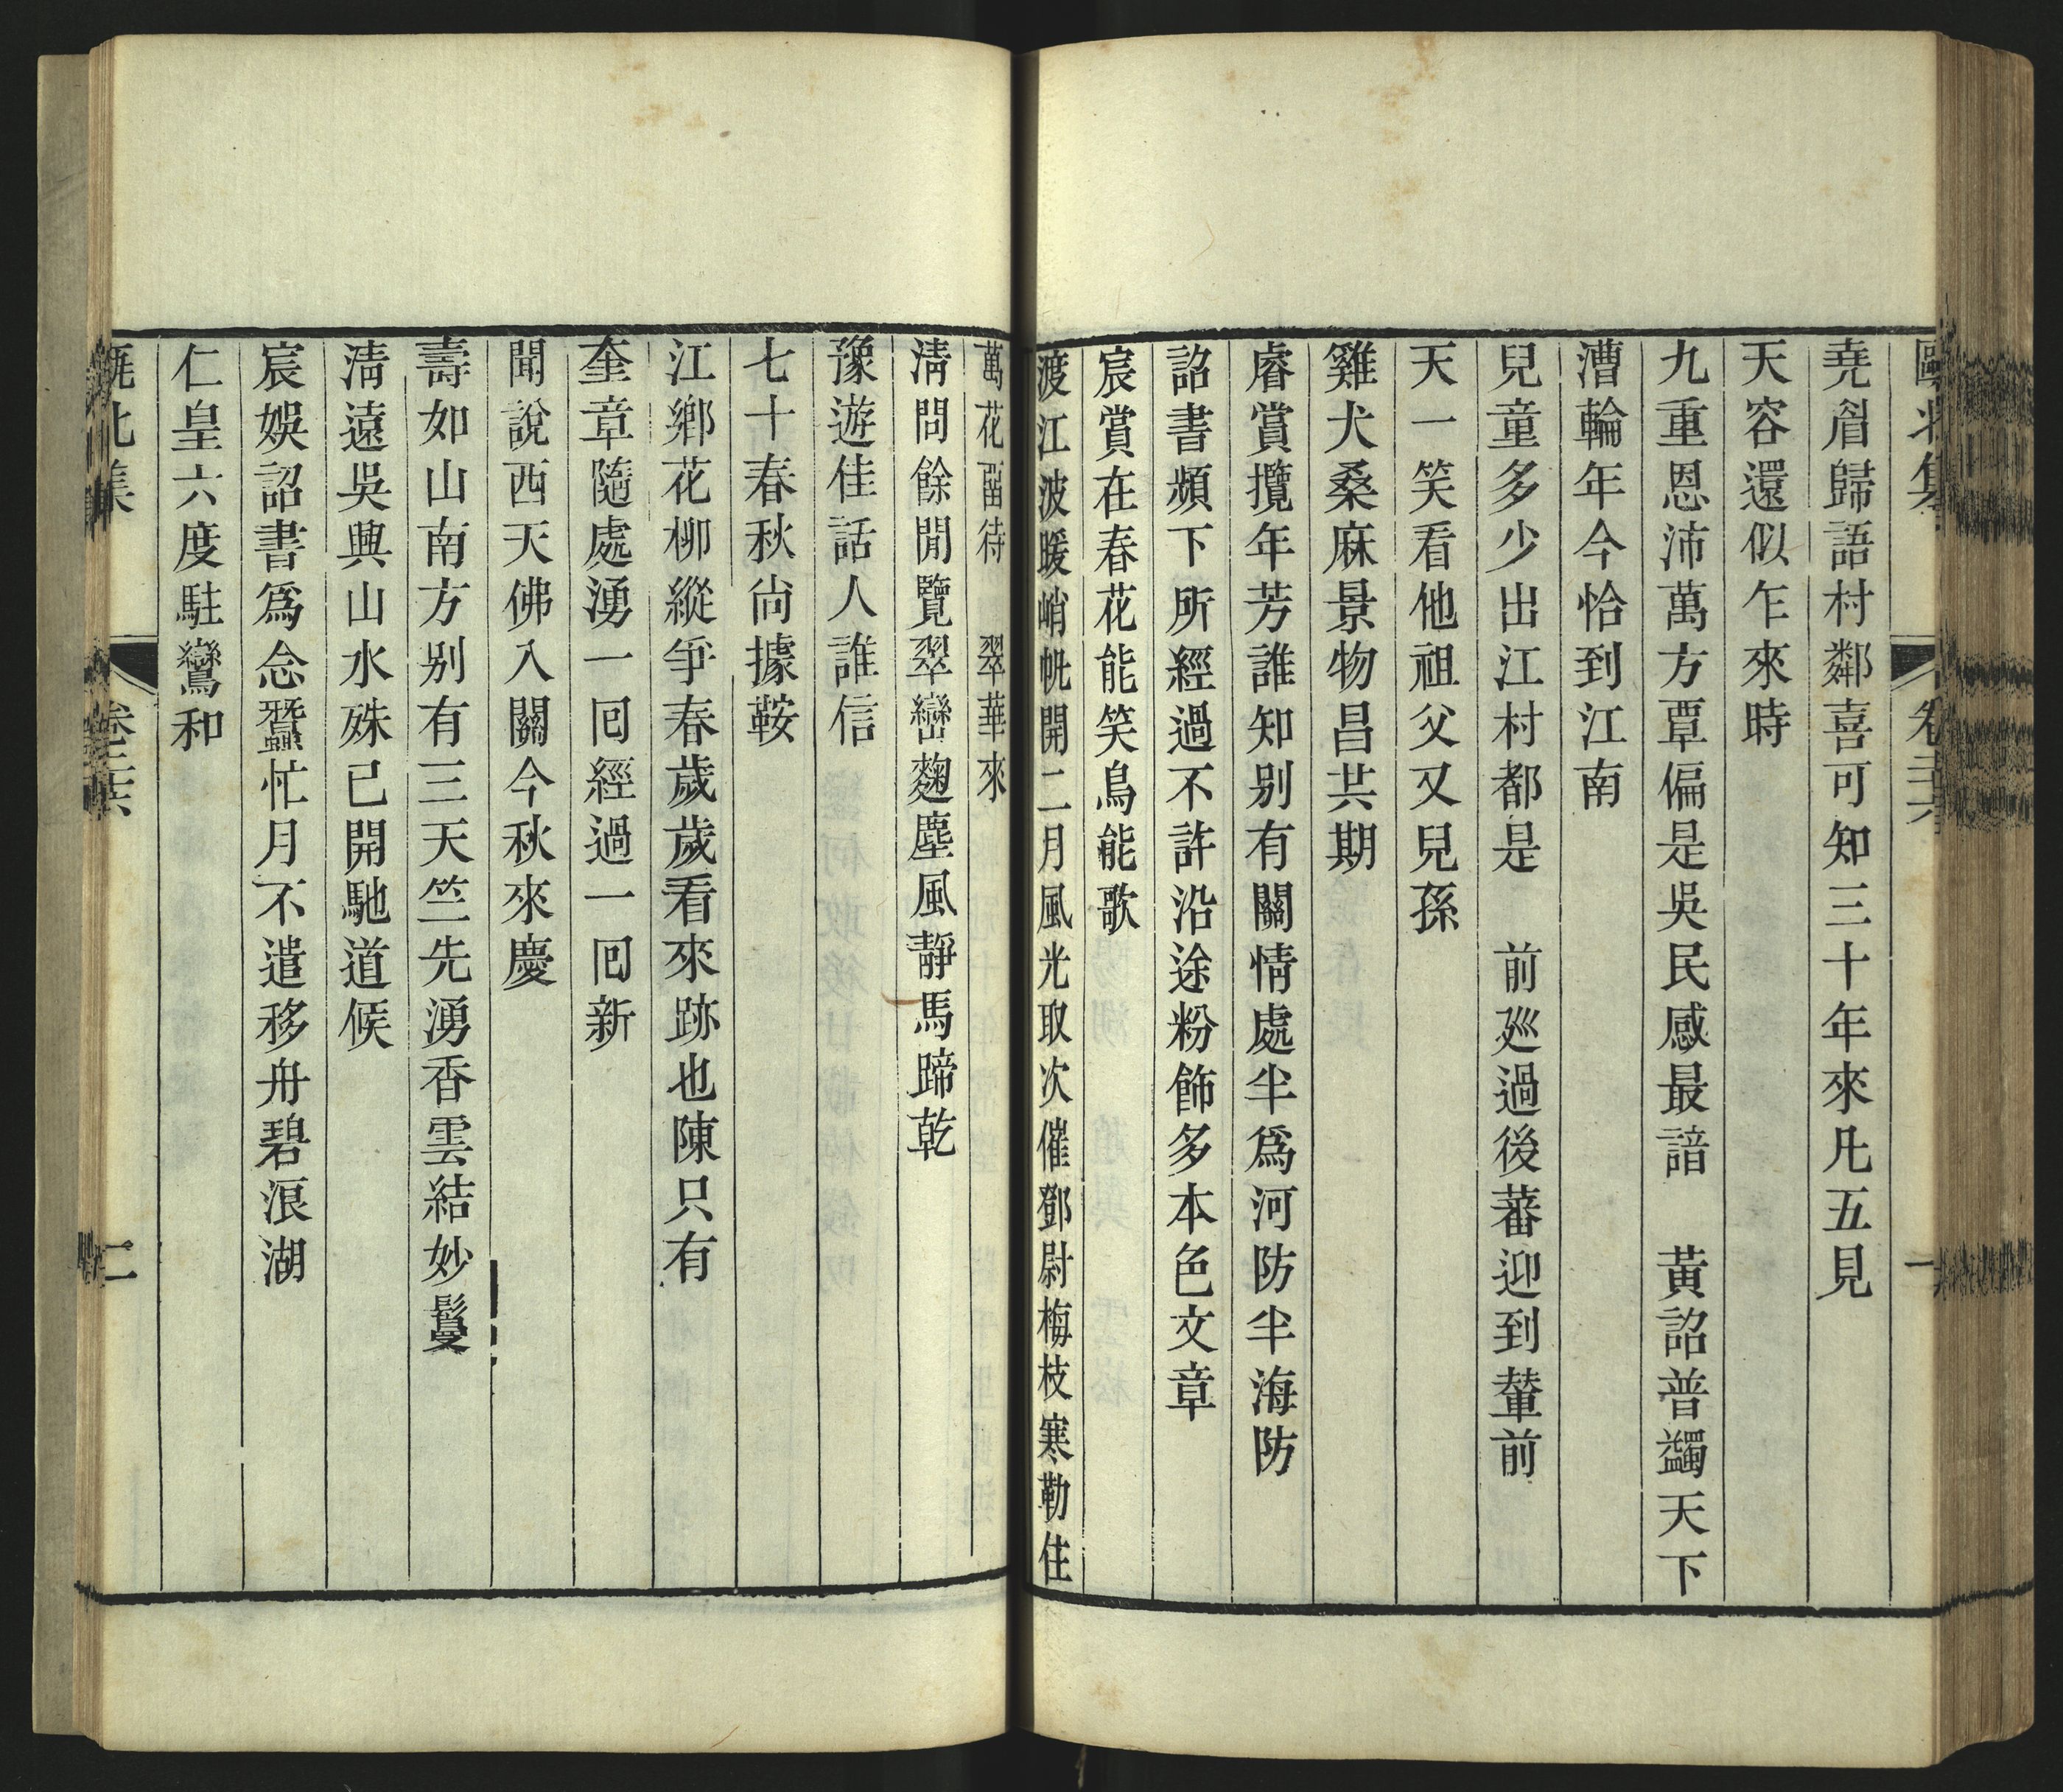 甌北集　卷三十六　一
堯眉歸語村鄰喜可知三十年來凡五見
天容還似乍來時
九重恩沛萬方覃偏是吳民感最諳　黃詔普蠲天下
漕輪年今恰到江南
兒童多少出江村都是　前廵過後蕃迎到輦前
天一笑看他祖父又兒孫
雞犬桑麻景物昌共期
睿賞攬年芳誰知别有關情處半爲河防半海防
詔書頻下所經過不許沿途粉飾多本色文章
宸賞在春花能笑鳥能歌
渡江波暖峭帆開二月風光取次催鄧尉梅枝寒勒住
萬花留待　翠華來
淸問餘閒覽翠巒麴塵風靜馬蹄乾
豫遊佳話人誰信
七十春秋尙據鞍
江鄉花柳縱爭春歲歲看來跡也陳只有
奎章隨處湧一囘經過一囘新
聞說西天佛入關今秋來慶
壽如山南方别有三天竺先湧香雲結妙鬘
淸遠吳興山水殊已開馳道候
宸娛詔書爲念蠶忙月不遣移舟碧浪湖
仁皇六度駐鸞和
甌北集　卷三十六　二